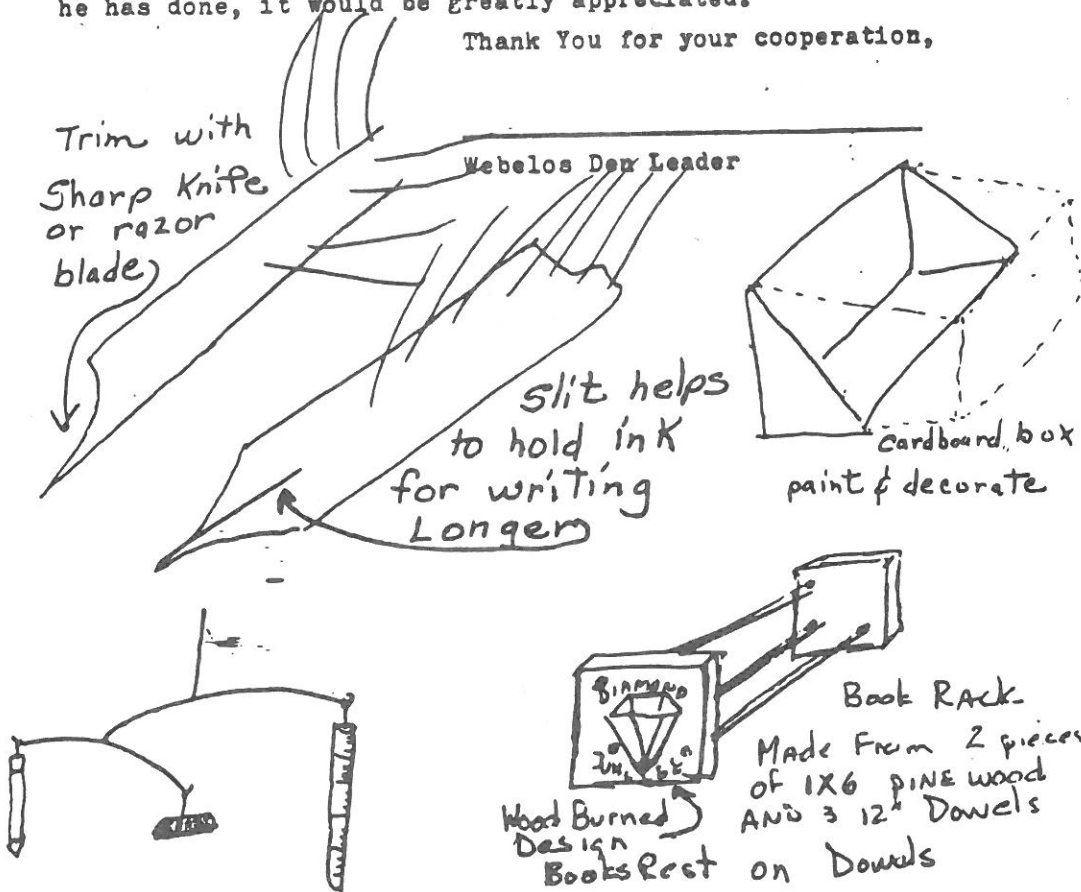 he has done, it would be greatly appreciated.
Thank You for your cooperation,
Webelos Den Leader
Trim with
Sharp Knife
or razor
blade
Slit helps
to hold ink
for writing
Longer
cardboard box
paint & decorate
DIAMOND
Book RACK
Made From 2 pieces
of 1X6 PINE wood
AND 3 12" Dowels
Wood Burned
Design
Books Rest on Dowels